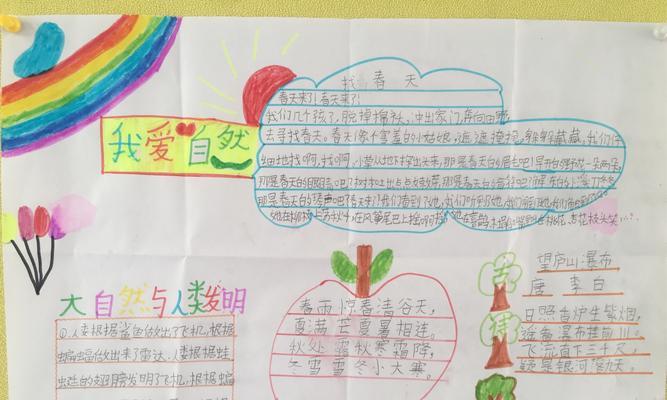 我爱自然
找春天
春天来了!春天来了!
我们几个孩子,脱掉棉袄,冲出家门,奔向田野,
去寻找春天。春天像个害羞的小姑娘,遮遮掩掩,躲躲藏藏。我们仔
细地找啊,找啊。小草从地下探出头来,那是春天的眉毛吧?早开的野花一朵两朵,
那是春天的眼睛吧?树木吐出点点嫩芽,那是春天的音符吧?解冻的小溪丁丁冬冬,
那是春天的琴声吧?春天来了!我们看到了她,我们听到了她,我们闻到了她,我们触到了她。
她在柳枝上荡秋千,在风筝尾巴上摇啊摇;她在喜鹊、杜鹃嘴里叫,在桃花、杏花枝头笑……
大自然与人类发明
①人类根据鲨鱼做出了飞机,根据
蝙蝠做出来了雷达,人类根据蛙
虫莛的翅膀发明了飞机,根据蝙
春雨惊春清谷天,
夏满芒夏暑相连。
秋处露秋寒霜降,
冬雪雪冬小大寒。
古
望庐山瀑布
唐 李白
日照香炉生紫烟,
遥看瀑布挂前川。
飞流直下三千尺,
疑是银河落九天。